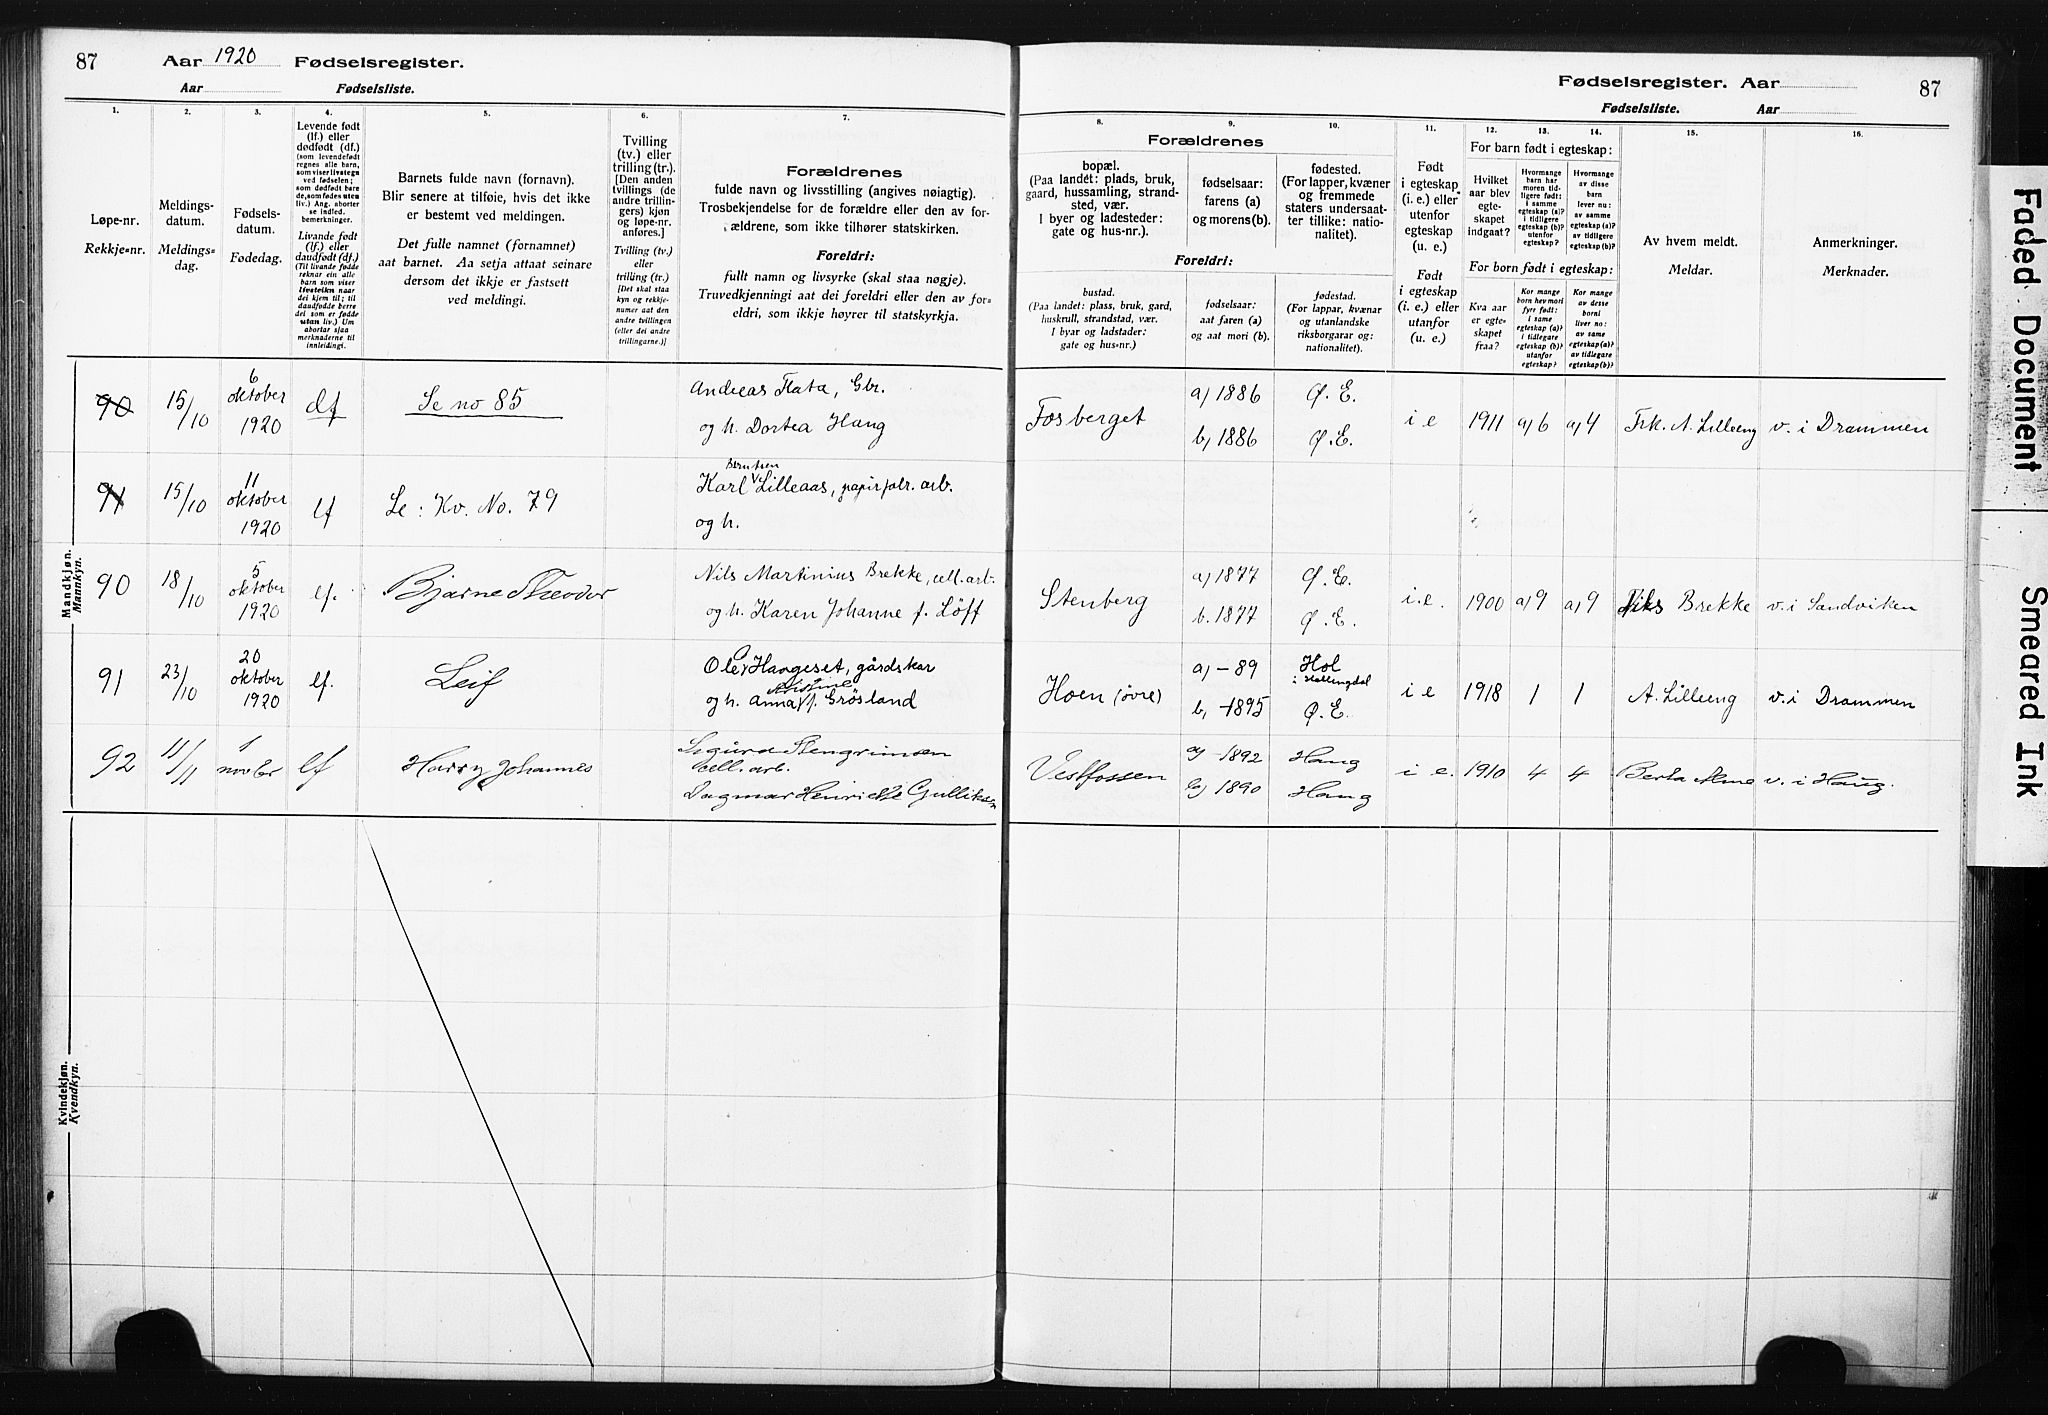 87 Aar 1920 Fødselsregister.
Aar Fødselsliste.
Fødselsregister. Aar 87
Fødselsliste. Aar
1.
Løpe-nr.
Rekkje-nr.
2.
Meldings-
datum.
Meldings-
dag.
3.
Fødsels-
datum.
Fødedag.
4.
Levende født
(lf.) eller
dødfødt (df.)
(som levendefødt
regnes alle barn,
som viser livstegn
ved fødselen;
som dødfødt bare
de, som fødes uten
liv.) Ang. aborter
se indled.
bemerkninger.
Livande født
(lf.) eller
daudfødt (df.)
(Til livande fødde
reknar ein alle
barn som viser
livsteikn naar
dei kjem til; til
daudfødde berre
dei som er fødde
utan liv.) Um
abortar sjaa
merknaderne til
innleidingi.
5.
Barnets fulde navn (fornavn).
Blir senere at tilføie, hvis det ikke
er bestemt ved meldingen.
Det fulle namnet (fornamnet)
aat barnet. Aa setja attaat seinare
dersom det ikkje er fastsett
ved meldingi.
6.
Tvilling
(tv.) eller
trilling (tr.).
[Den anden
tvillings (de
andre trillin-
gers) kjøn
og løpe-nr.
anføres.]
Tvilling (tv.)
eller
trilling (tr.)
[Det skal staa
kyn og rekkje-
numer aat den
andre tvillingen
(eller dei andre
trillingarne.)]
7.
Forældrenes
fulde navn og livsstilling (angives nøiagtig).
Trosbekjendelse for de forældre eller den av for-
ældrene, som ikke tilhører statskirken.
Foreldri:
fullt namn og livsyrke (skal staa nøgje).
Truvedkjenningi aat dei foreldri eller den av for-
eldri, som ikkje høyrer til statskyrkja.
Forældrenes
8.
bopæl.
(Paa landet: plads, bruk,
gaard, hussamling, strand-
sted, vær.
I byer og ladesteder:
gate og hus-nr.).
9.
fødselsaar:
farens (a)
og morens (b).
10.
fødested.
(For lapper, kvæner
og fremmede
staters undersaat-
ter tillike: natio-
nalitet).
Foreldri:
bustad.
(Paa landet: plass, bruk, gard,
huskrull, strandstad, vær.
I byar og ladstader:
gate og hus-nr.)
fødselsaar:
aat faren (a)
og aat mori (b).
fødestad.
(For lappar, kvænar
og utanlandske
riksborgarar og:
nationalitet).
11.
Født
i egteskap
(i. e.) eller
utenfor
egteskap
(u. e.)
Født
i egteskap
(i. e.) eller
utanfor
(u. e.)
12. 13. 14.
For barn født i egteskap:
Hvilket
aar blev
egte-
skapet
indgaat?
Hvormange
barn har
moren tid-
ligere født:
i samme
egteskap (a)?
i tidligere
egteskap (b)?
utenfor
egteskap?
Hvormange
av disse
barn
lever nu:
av samme
egteskap (a)?
av tidligere
egteskap (b)?
For born født i egteskap:
Kva aar
er egte-
skapet
fraa?
Kor mange
born hev mori
fyre født:
i same
egteskap (a)?
i tidlegare
egteskap (b)?
utanfor
egteskap?
Kor mange
av desse
borni
liver no:
av same
egteskap (a)?
av tidlegare
egteskap (b)?
15.
Av hvem meldt.
Meldar.
16.
Anmerkninger.
Merknader.
Mandkjøn.
Mannkyn.
90 15/10 6 oktober 1920 df Se no 85 Andreas Flata, Gbr.
og h. Dortea Haug
Fosberget a) 1886 Ø. E. i e 1911 a) 6 a) 4 Frk. A. Lilleeng v. i Drammen
b) 1886 Ø. E.
91 15/10 11 oktober 1920 lf Se: Kv. No. 79 Karl Berntsen Lilleaas, papirfabr. arb.
og h.
90 18/10 5 oktober 1920 lf. Bjarne Theodor Nils Martinius Brekke, cell. arb.
og h. Karen Johanne f. Löff
Stenberg a) 1877 Ø. E. i. e. 1900 a) 9 a) 9 Nils Brekke v. i Sandviken
b. 1877 Ø. E.
91 23/10 20 oktober 1920 lf. Leif Ole Haugeset, gårdskar
og h. Anna Kristine f. Grösland
Hoen (övre) a) - 89 Hol i Hallingdal i e 1918 1 1 A. Lilleeng v. i Drammen
b, -1895 Ø. E.
92 11/11 1 novbr lf Harry Johannes Sigurd Stengrimsen
cell. arb.
Dagmar Henriette Gulliksen
Vestfossen a) -1892 Haug i e. 1910 4 4 Berta Alme v. i Haug.
b) 1890 Haug
Kvindekjøn.
Kvendkyn.
Faded Document
Smeared Ink